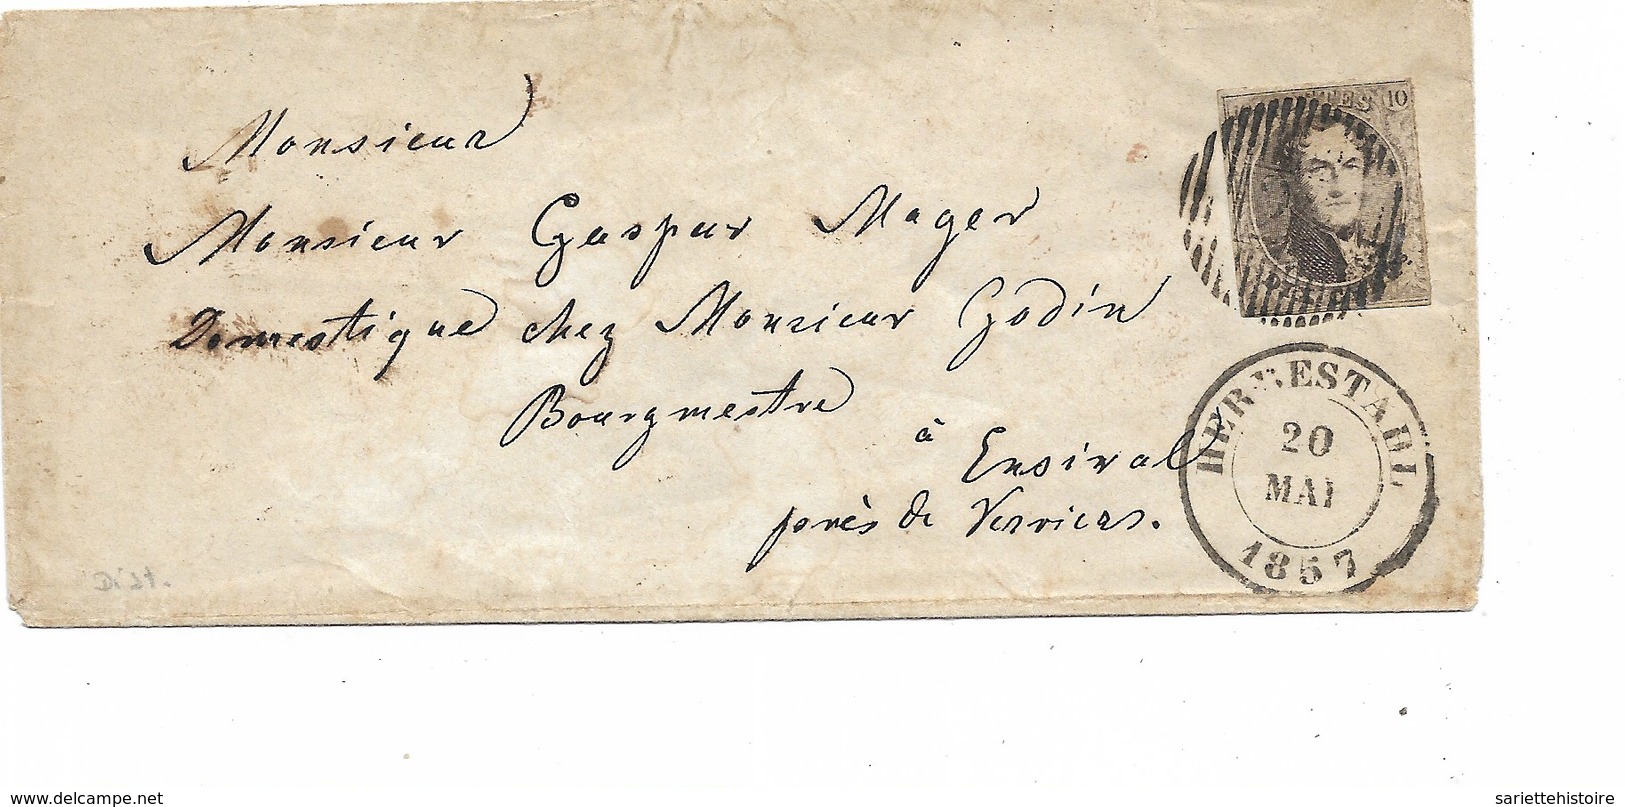 Monsieur
Monsieur Gaspar Mager
Domestique chez Monsieur Godin
Bourgmestre
à
Ensival
près de Verviers.
10
HERBESTAHL
20
MAI
1857
www.delcampe.net
sariettehistoire